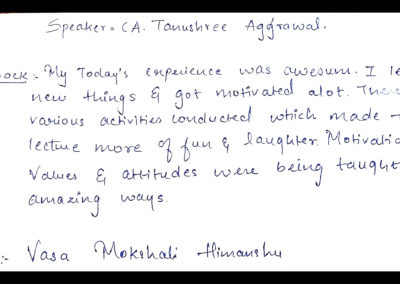 Speaker = CA. Tanushree Aggrawal.
back :- My Today's experience was awesum. I le
new things & got motivated alot. There
various activities conducted which made
lecture more of fun & laughter. Motivatio
Values & attitudes were being taught
amazing ways.
:- Vasa Mokshali Himanshu